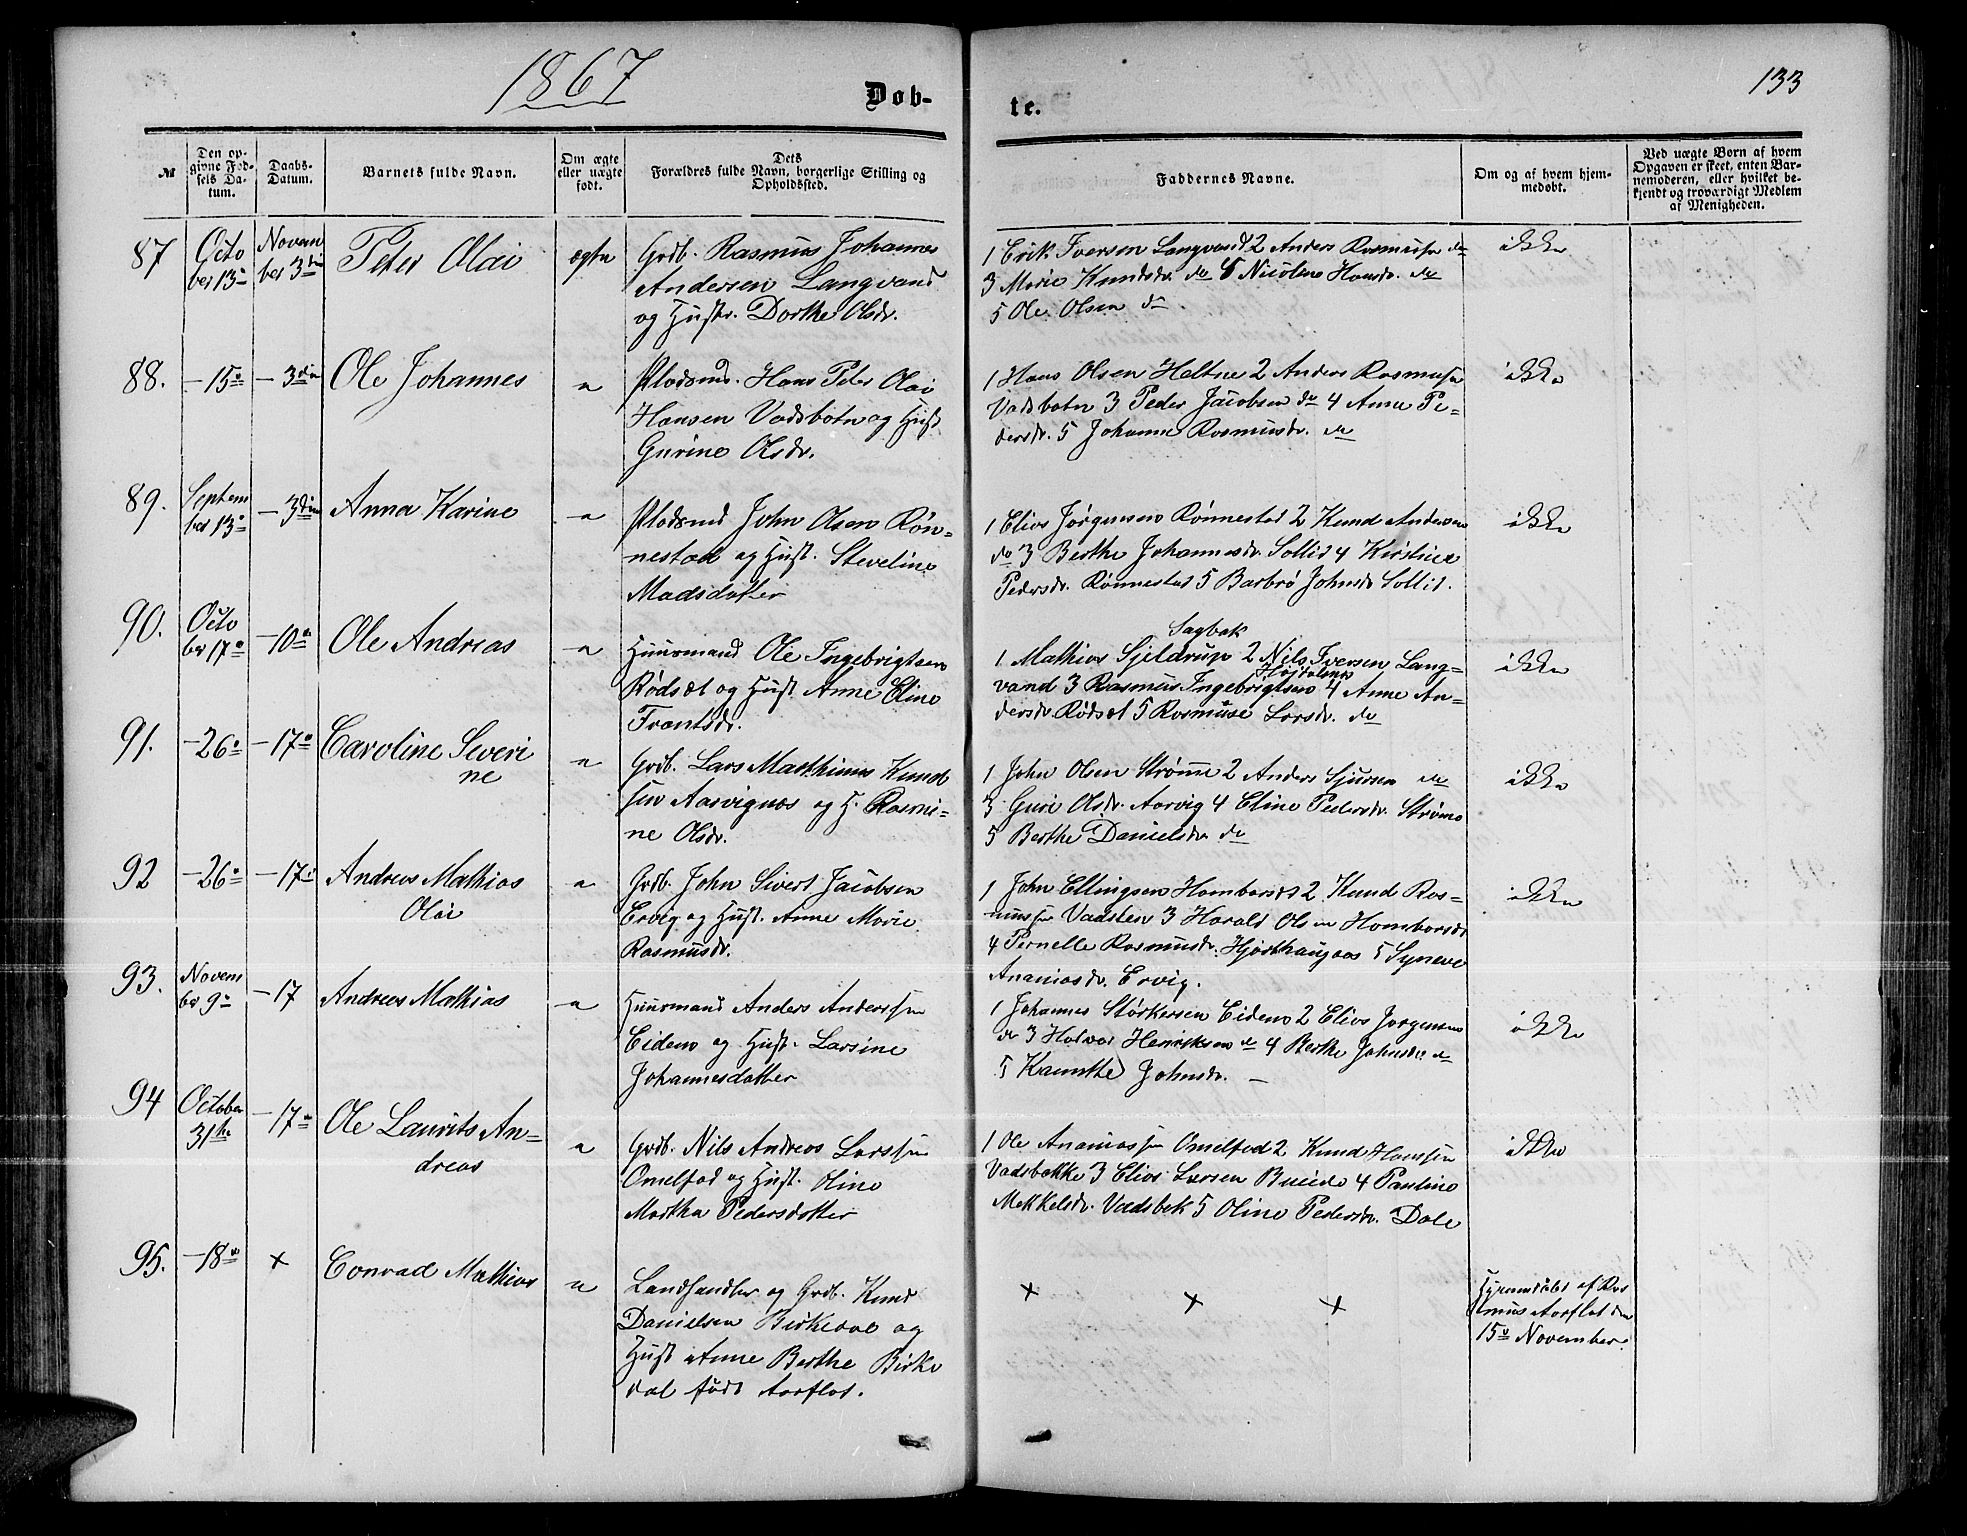 1867
133
Døb-
te.
№
Den op-
givne Fød-
sels Da-
tum.
Daabs-
Datum.
Barnets fulde Navn.
Om ægte
eller uægte
født.
Dets
Forældres fulde Navn, borgerlige Stilling og
Opholdssted.
Faddernes Navne.
Om og af hvem hjem-
medøbt.
Ved uægte Børn af hvem
Opgaven er skeet, enten Bar-
nemoderen, eller hvilket be-
kjendt og troværdigt Medlem
af Menigheden.
87
Octo
ber 13
Novem
ber 3die
Peter Olai
ægte
Grdb. Rasmus Johannes
Andersen Langvand
og Hustr. Dorthe Olsdr.
1 Erik Iversen Langvand 2 Anders Rasmussen do
3 Marie Knudsdr. do 4 Nicoline Hansdr. do
5 Ole Olsen do
ikke
88.
-15
-3die
Ole Johannes
"
Pladsmd. Hans Peter Olai
Hansen Vadsbotn og Hust
Gurine Olsdr.
1 Hans Olsen Heltne 2 Anders Rasmussen
Vadsbotn 3 Peder Jacobsen do 4 Anne Pe-
dersdr. 5 Johanne Rasmusdr. do
ikke
89.
Septem
ber 13
-3die
Anna Karine
"
Pladsmd John Olsen Røn-
nestad og Hust. Steveline
Madsdatter
1 Elias Jørgensen Rønnestad 2 Knud Andersen
do 3 Berthe Johannesdr. Sollid 4 Kirstine
Pedersdr. Rønnestad 5 Barbrø Johnsdr Sollid.
ikke
90.
Octo
ber 17
-10
Ole Andreas
"
Huusmand Ole Ingebrigtsen
Rødsæt og Hust Anne Eline
Frantsdr.
Sagbak
1 Mathias Sjeldrup 2 Nils Iversen Lang-
vand 3 Rasmus Ingebrigtsen 4 Anne An-
dersdr. Rødsæt 5 Rasmuse Larsdr. do
ikke
91.
-26
-17
Caroline Severi
ne
"
Grdb. Lars Matthias Knud
sen Aarvignæs og H. Rasmi-
ne Olsdr.
1 John Olsen Strømme 2 Anders Sjursen do
3 Guri Olsdr. Aarvig 4 Eline Pedersdr. Strømme
5 Berthe Danielsdr. do
ikke
92
-26
-17
Andreas Mathias
Olai
"
Grdb. John Sivert Jacobsen
Ervig og Hust. Anne Marie
Rasmusdr.
1 John Ellingsen Hamborset 2 Knud Ras-
mussen Vadsten 3 Harald Olsen Hamborset
4 Pernelle Rasmusdr. Hjorthaugaas 5 Syneve
Ananiasdr. Ervig.
ikke
93.
Novem
ber 9
-17
Andreas Mathias
"
Huusmand Anders Anderssen
Eidem og Hust. Larsine
Johannesdatter
1 Johannes Størkersen Eidem 2 Elias Jørgensen
do 3 Halvar Henriksen do 4 Berthe Johnsdr. do
5 Johnsdr. -
ikke
94
October
31te
-17
Ole Laurits An-
dreas
"
Grdb. Nils Andreas Larssen
Omelfod og Hust. Oline
Martha Pedersdatter
1 Ole Ananiassen Omelfod 2 Knud Hanssen
Vadsbakke 3 Elias Larsen 4 Pauline
Mekkelsdr. Vadsbak 5 Oline Pedersdr. Dale
ikke
95.
-18
×
Conrad Mathias
"
Landhandler og Grdb. Knud
Danielsen Birkedal og
Hust Anne Berthe Birke
dal født Aarflot.
× × ×
Hjemmedøbt af Ras
mus Aarflot den
15 November.